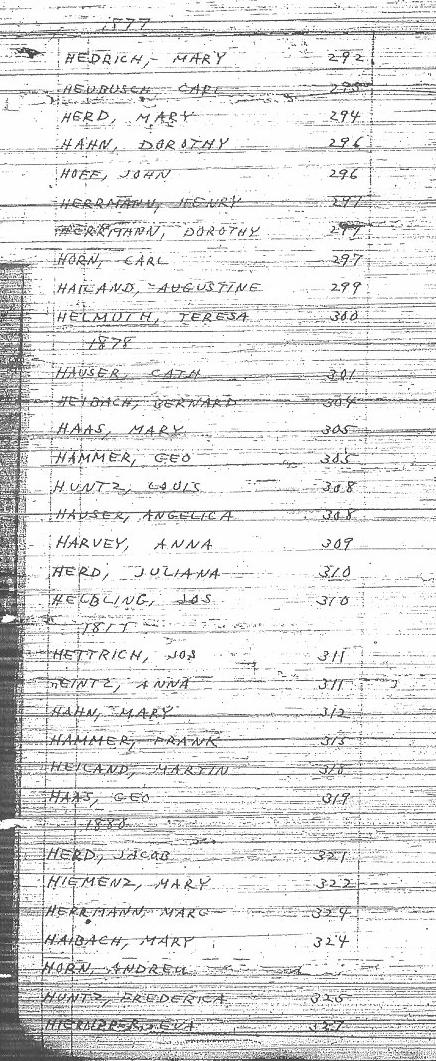 1877
HEDRICH, MARY 292
HEUBUSCH CARL 293
HERD, MARY 294
HAHN, DOROTHY 296
HOFF, JOHN 296
HERRMANN, HENRY 297
HERRMANN, DOROTHY 297
HORN, CARL 297
HAILAND, AUGUSTINE 299
HELMUTH, TERESA 300
1878
HAUSER, CATH 301
HEIBACH, BERNARD 304
HAAS, MARY 305
HAMMER, GEO 305
HUNTZ, LOUIS 308
HAUSER, ANGELICA 308
HARVEY, ANNA 309
HERD, JULIANA 310
HELBLING, JOS 310
HETTRICH, JOS 311
HEINTZ, ANNA 311
HAHN, MARY 312
HAMMER, FRANK 315
HEILAND, MARTIN 318
HAAS, GEO 319
1880
HERD, JACOB 321
HIEMENZ, MARY 322
HERRMANN, MARG 324
HAIBACH, MARY 324
HORN, ANDREW
HUNTZ, FREDERICA 325
EVA 327